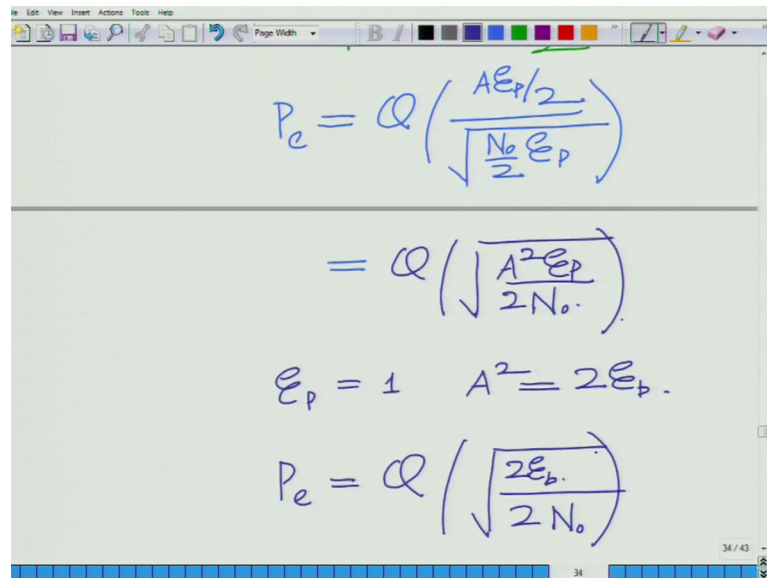 File Edit View Insert Actions Tools Help
Page Width
B I
P_e = Q ( (Aℰ_p/2) / √(N_0/2 ℰ_p) )
= Q ( √(A^2 ℰ_p / 2 N_0) ).
ℰ_p = 1 A^2 = 2ℰ_b.
P_e = Q ( √(2ℰ_b. / 2 N_0) )
34 / 43
34